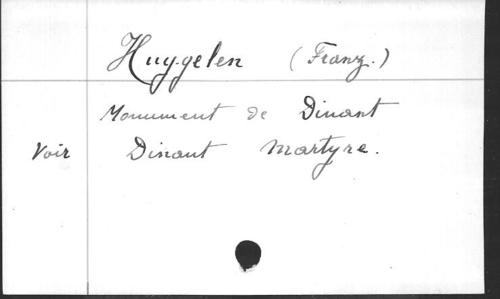 Huygelen (Franz.)
Monument de Dinant
Voir Dinant martyre.